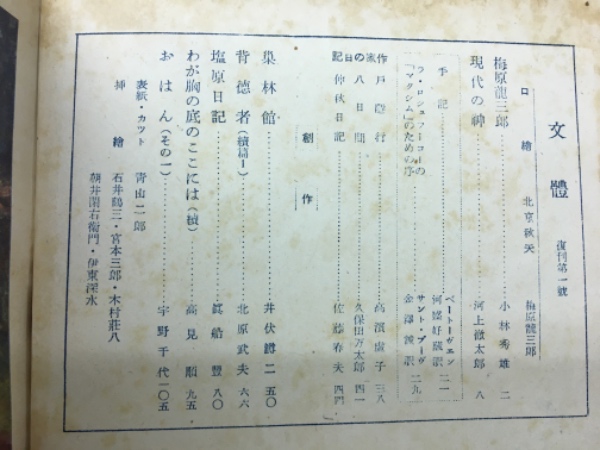 文體 復刊第一號
口繪 北京秋天 梅原龍三郎
梅原龍三郎……小林秀雄 二
現代の神……河上徹太郎 八
手記……ベートーヴェン 河盛好蔵訳
ラ・ロシュフーコーの「マクシム」のための序……サント・ブーヴ 金澤 訳 二九
作家の日記
戸 行……高濱虚子 三八
八日間……久保田万太郎 四一
仲秋日記……佐藤春夫 四四
創作
巣林館……井伏鱒二 五〇
背徳者(續篇1)……北原武夫 六六
塩原日記……眞船豐 八〇
わが胸の底のここには(續)……高見順 九五
おはん(その一)……宇野千代 一〇五
表紙・カット 青山二郎
挿繪 石井鶴三・宮本三郎・木村荘八
朝井閑右衛門・伊東深水